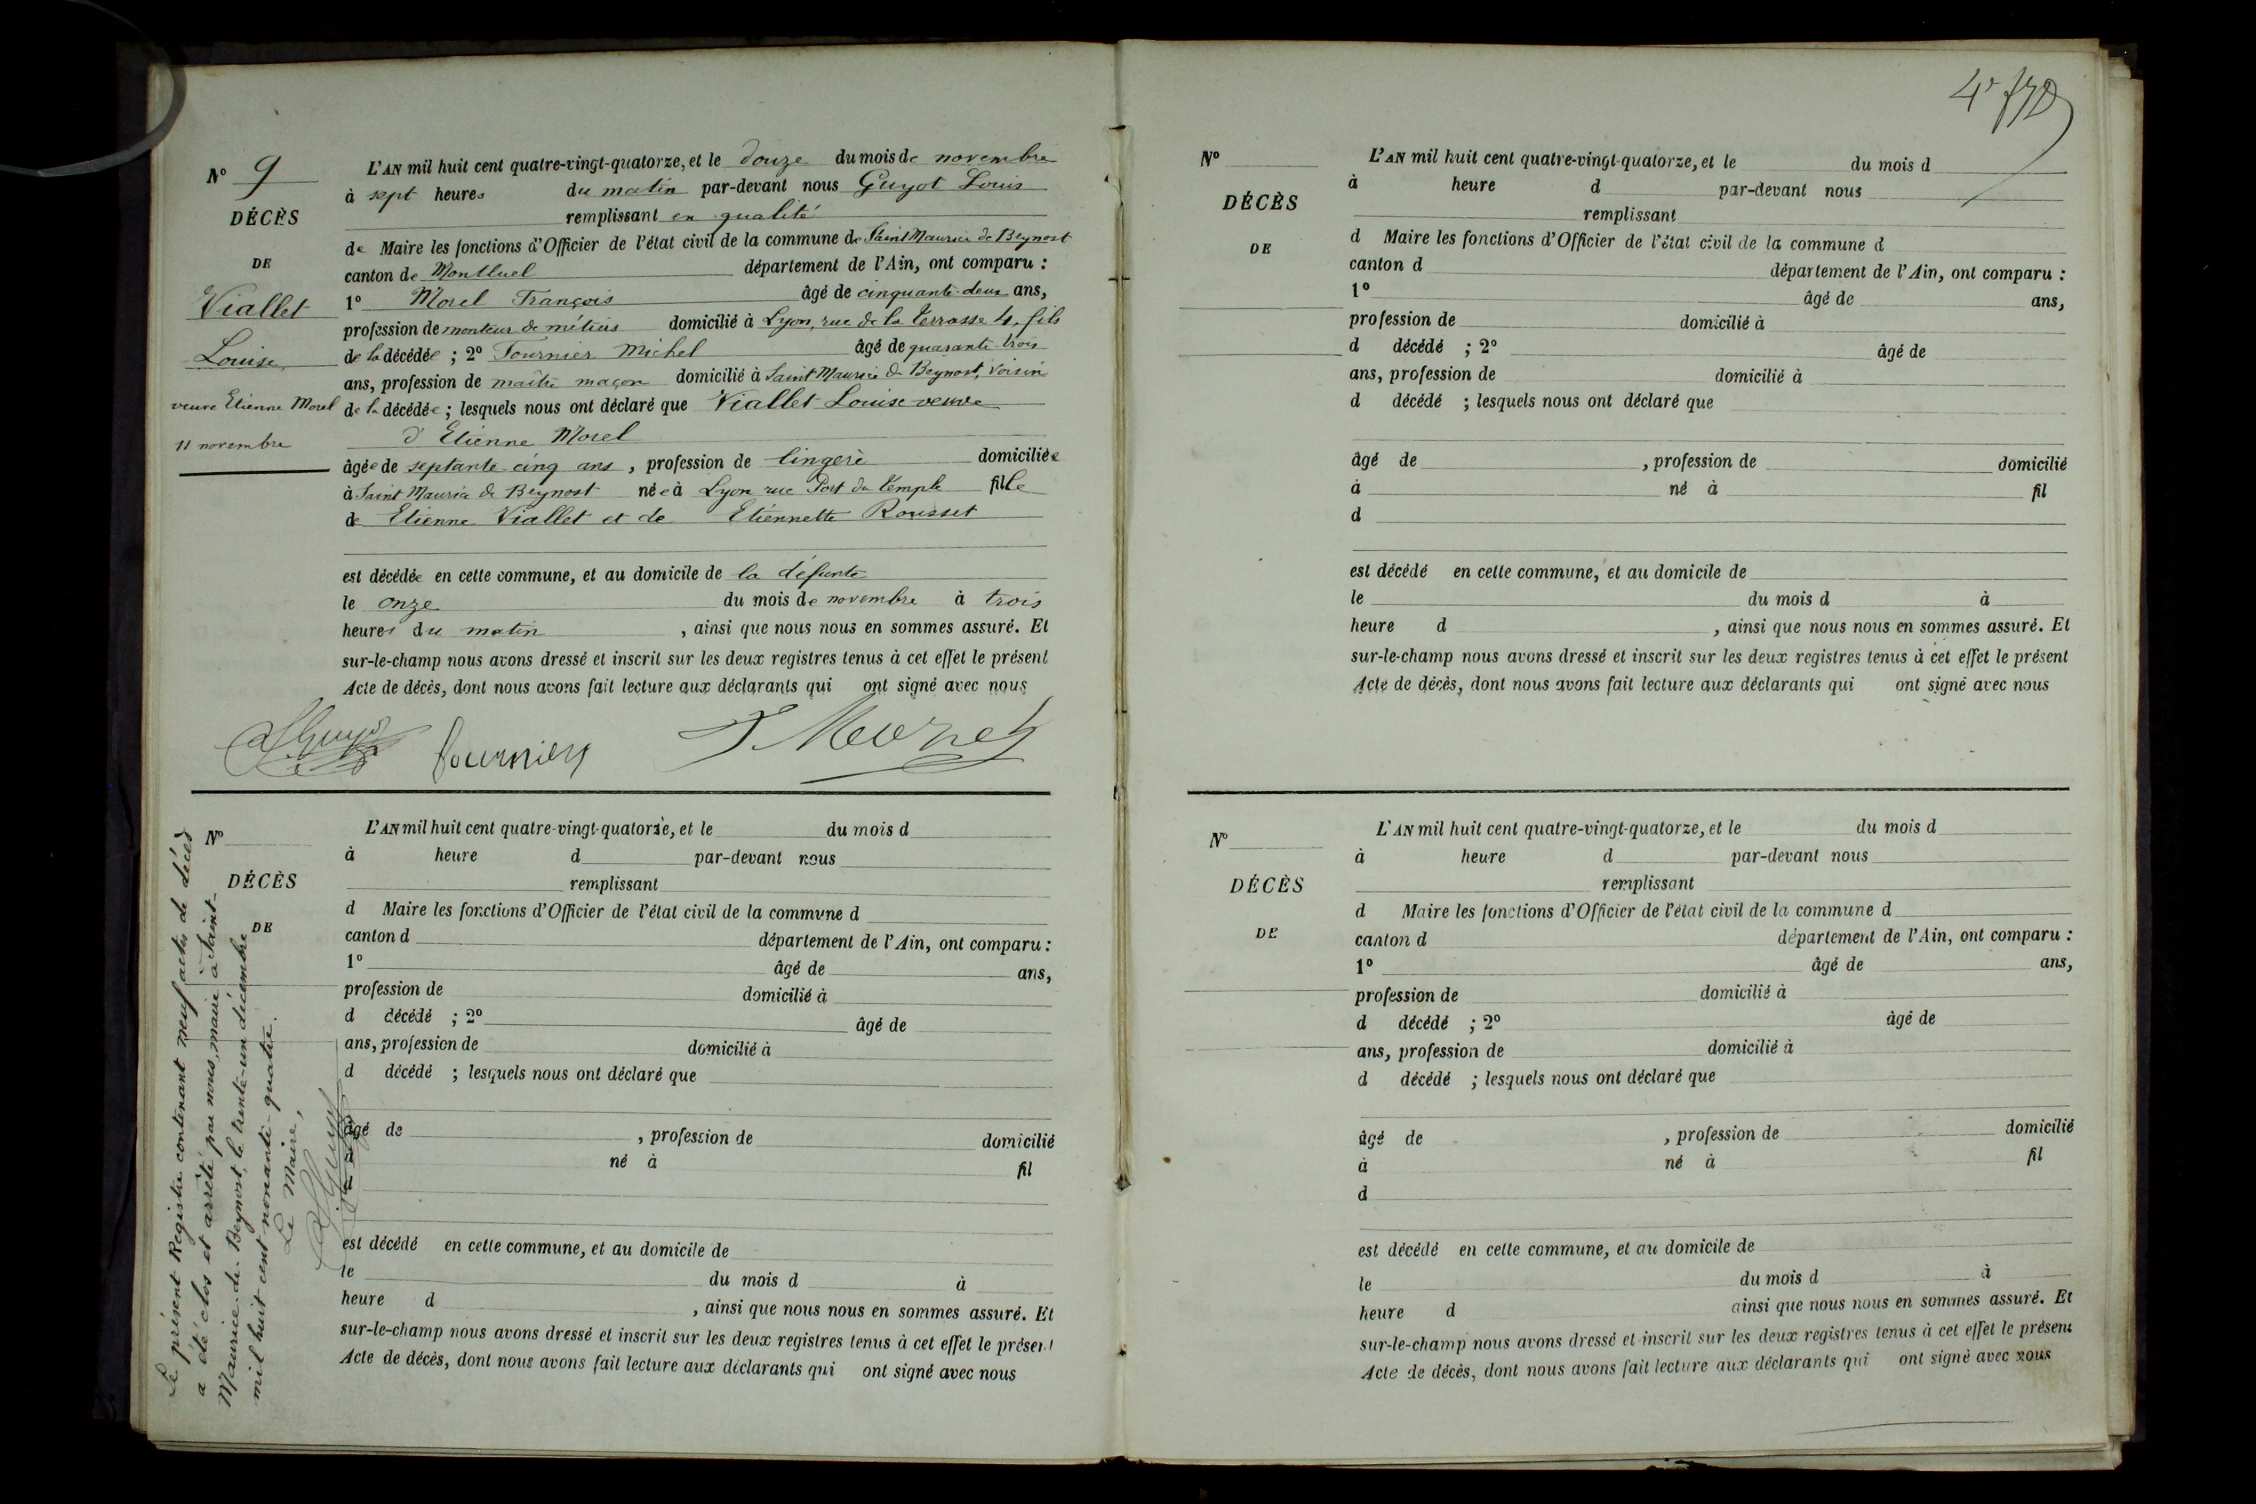 Nº 9
DÉCÈS
DE
Viallet
Louise
veuve Etienne Morel
11 novembre
L'AN mil huit cent quatre-vingt-quatorze, et le douze du mois de novembre
à sept heures du matin par-devant nous Guyot Louis
remplissant en qualité
de Maire les fonctions d'Officier de l'état civil de la commune de Saint Maurice de Beynost
canton de Montluel département de l'Ain, ont comparu :
1º Morel François âgé de cinquante-deux ans,
profession de monteur de métiers domicilié à Lyon, rue de la terrasse 4, fils
de la décédée ; 2º Fournier Michel âgé de quarante-trois
ans, profession de maître maçon domicilié à Saint Maurice de Beynost, voisin
de la décédée ; lesquels nous ont déclaré que Viallet Louise veuve
d'Etienne Morel
âgée de septante cinq ans, profession de lingère domiciliée
à Saint Maurice de Beynost née à Lyon rue Port du temple fille
de Etienne Viallet et de Etiennette Rousset
est décédée en cette commune, et au domicile de la défunte
le onze du mois de novembre à trois
heures du matin, ainsi que nous nous en sommes assuré. Et
sur-le-champ nous avons dressé et inscrit sur les deux registres tenus à cet effet le présent
Acte de décès, dont nous avons fait lecture aux déclarants qui ont signé avec nous
LGuyot fournier
Le présent Registre contenant neuf actes de décès
a été clos et arrêté par nous, maire à Saint-
Maurice-de-Beynost, le trente-un décembre
mil huit cent nonante-quatre.
Le Maire,
LGuyot
Nº
DÉCÈS
DE
L'AN mil huit cent quatre-vingt-quatorze, et le du mois d
à heure d par-devant nous
remplissant
d Maire les fonctions d'Officier de l'état civil de la commune d
canton d département de l'Ain, ont comparu :
1º âgé de ans,
profession de domicilié à
d décédé ; 2º âgé de
ans, profession de domicilié à
d décédé ; lesquels nous ont déclaré que
âgé de , profession de domicilié
né à fil
est décédé en cette commune, et au domicile de
le du mois d à
heure d , ainsi que nous nous en sommes assuré. Et
sur-le-champ nous avons dressé et inscrit sur les deux registres tenus à cet effet le présent
Acte de décès, dont nous avons fait lecture aux déclarants qui ont signé avec nous
Nº
DÉCÈS
DE
L'AN mil huit cent quatre-vingt-quatorze, et le du mois d
à heure d par-devant nous
remplissant
d Maire les fonctions d'Officier de l'état civil de la commune d
canton d département de l'Ain, ont comparu :
1º âgé de ans,
profession de domicilié à
d décédé ; 2º âgé de
ans, profession de domicilié à
d décédé ; lesquels nous ont déclaré que
âgé de , profession de domicilié
à né à fil
d
est décédé en cette commune, et au domicile de
le du mois d à
heure d , ainsi que nous nous en sommes assuré. Et
sur-le-champ nous avons dressé et inscrit sur les deux registres tenus à cet effet le présent
Acte de décès, dont nous avons fait lecture aux déclarants qui ont signé avec nous
Nº
DÉCÈS
DE
L'AN mil huit cent quatre-vingt-quatorze, et le du mois d
à heure d par-devant nous
remplissant
d Maire les fonctions d'Officier de l'état civil de la commune d
canton d département de l'Ain, ont comparu :
1º âgé de ans,
profession de domicilié à
d décédé ; 2º âgé de
ans, profession de domicilié à
d décédé ; lesquels nous ont déclaré que
âgé de , profession de domicilié
à né à fil
d
est décédé en cette commune, et au domicile de
le du mois d à
heure d ainsi que nous nous en sommes assuré. Et
sur-le-champ nous avons dressé et inscrit sur les deux registres tenus à cet effet le présent
Acte de décès, dont nous avons fait lecture aux déclarants qui ont signé avec nous